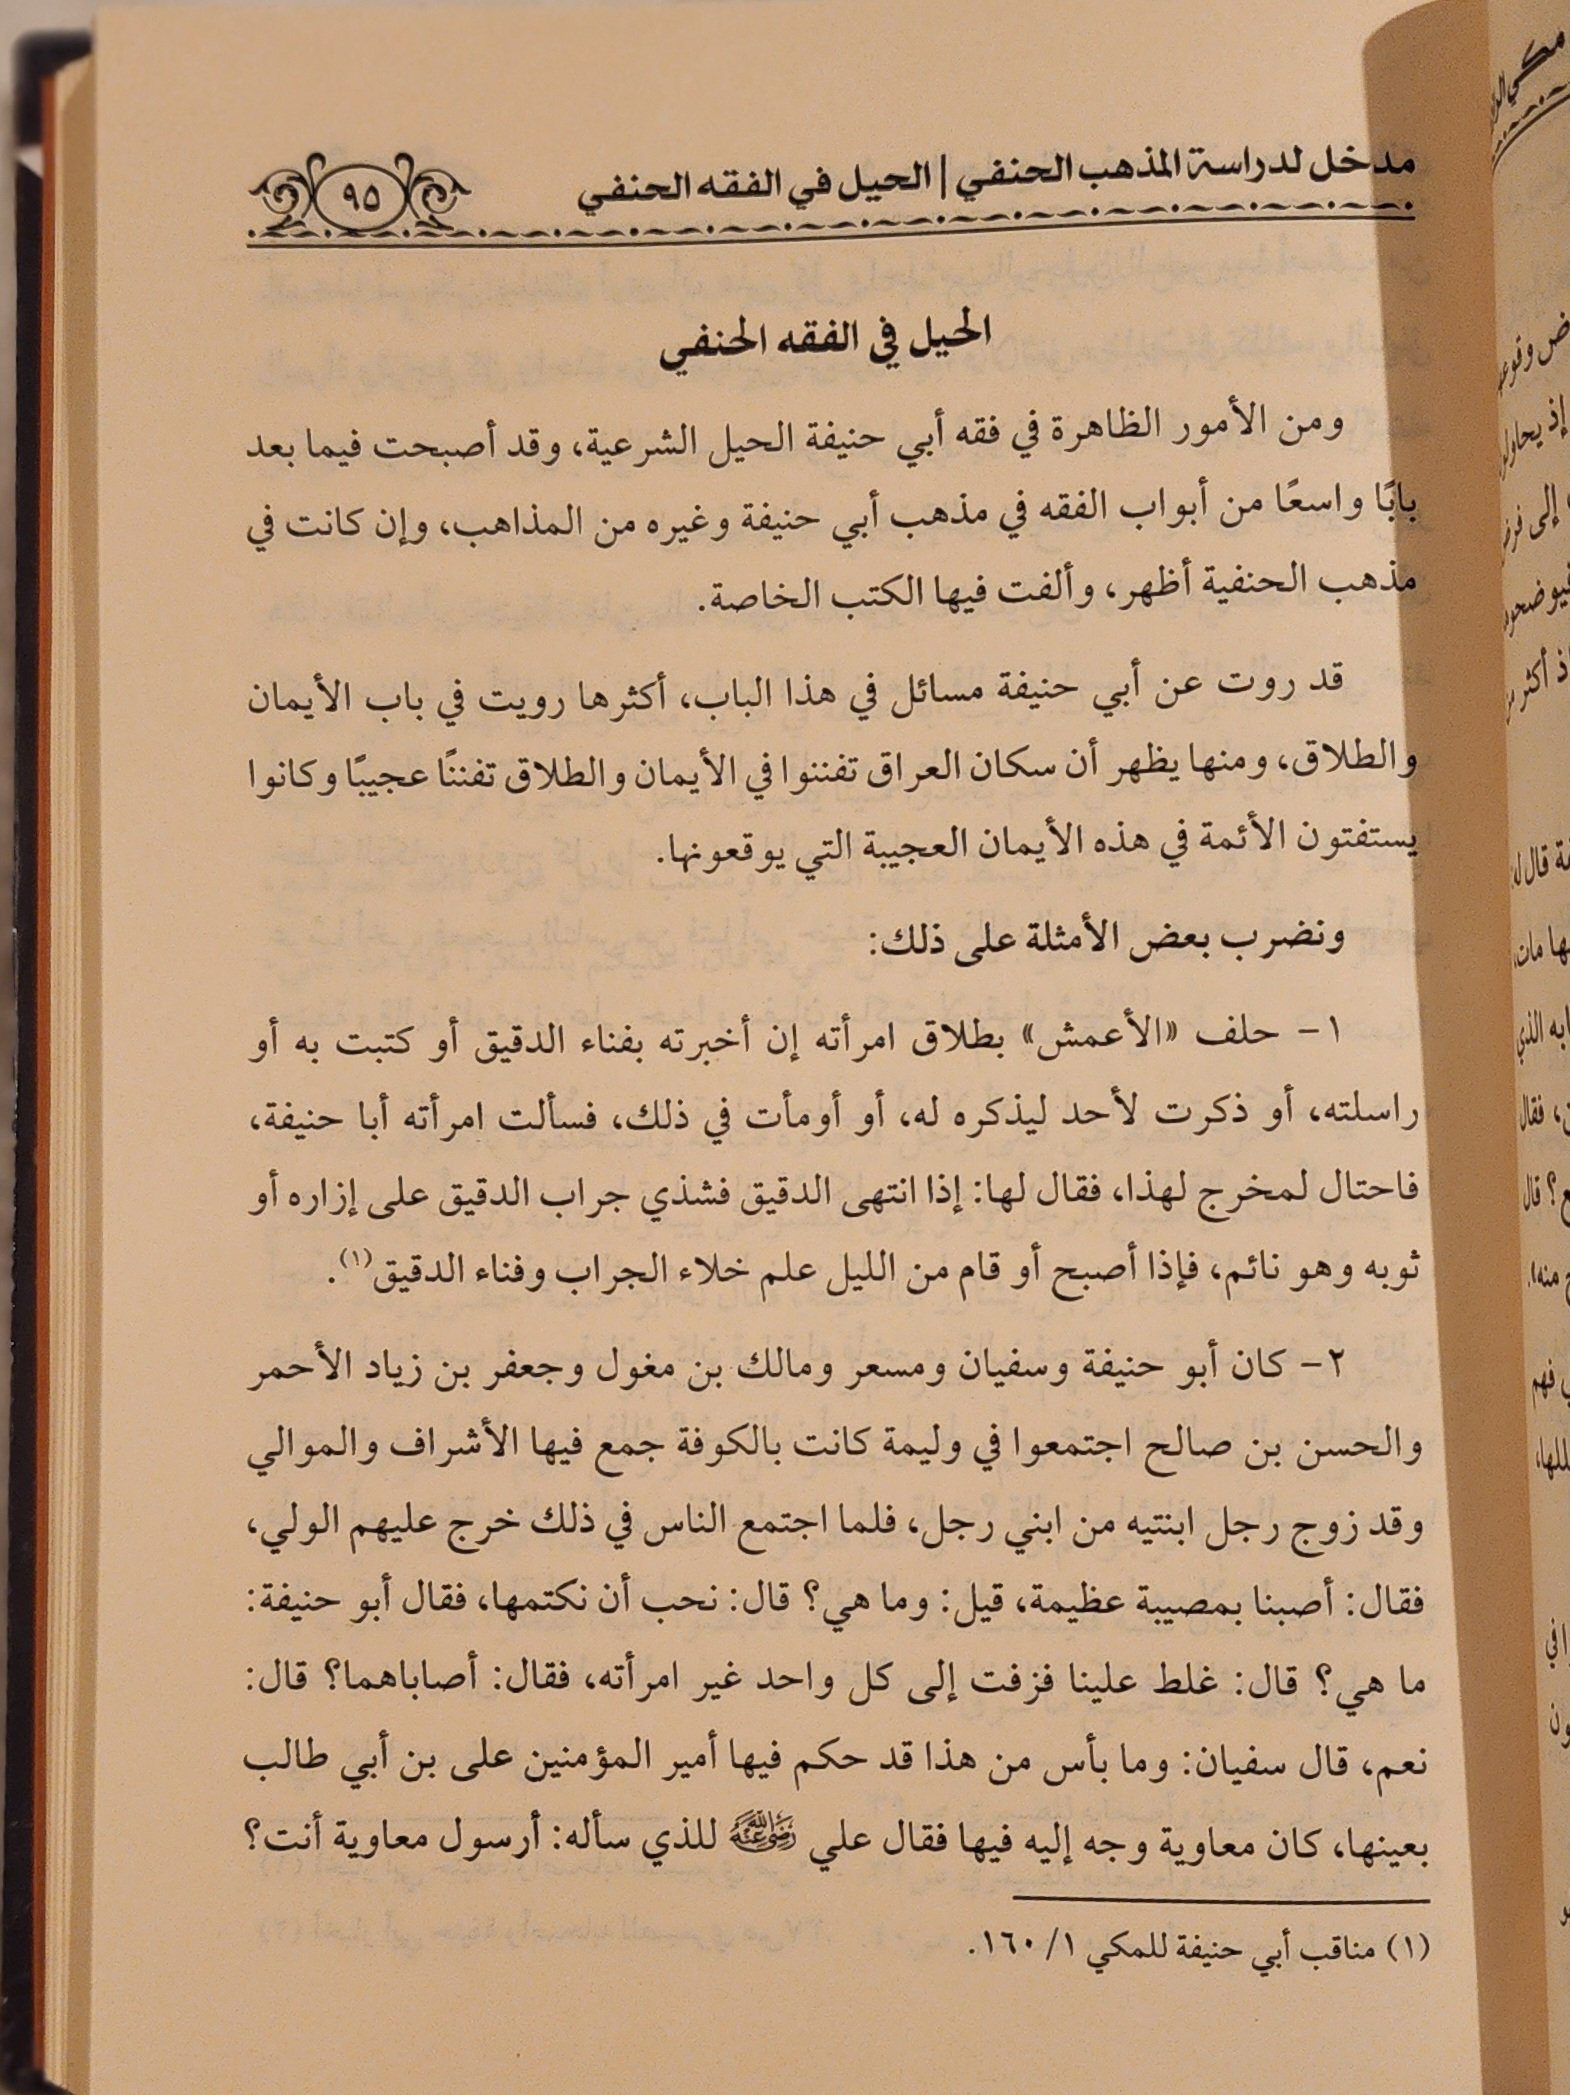 مدخل لدراسة المذهب الحنفي | الحيل في الفقه الحنفي
٩٥
الحيل في الفقه الحنفي
ومن الأمور الظاهرة في فقه أبي حنيفة الحيل الشرعية، وقد أصبحت فيما بعد
بابًا واسعًا من أبواب الفقه في مذهب أبي حنيفة وغيره من المذاهب، وإن كانت في
مذهب الحنفية أظهر، وألفت فيها الكتب الخاصة.
قد روت عن أبي حنيفة مسائل في هذا الباب، أكثرها رويت في باب الأيمان
والطلاق، ومنها يظهر أن سكان العراق تفننوا في الأيمان والطلاق تفننًا عجيبًا وكانوا
يستفتون الأئمة في هذه الأيمان العجيبة التي يوقعونها.
ونضرب بعض الأمثلة على ذلك:
١- حلف «الأعمش» بطلاق امرأته إن أخبرته بفناء الدقيق أو كتبت به أو
راسلته، أو ذكرت لأحد ليذكره له، أو أومأت في ذلك، فسألت امرأته أبا حنيفة،
فاحتال لمخرج لهذا، فقال لها: إذا انتهى الدقيق فشذي جراب الدقيق على إزاره أو
ثوبه وهو نائم، فإذا أصبح أو قام من الليل علم خلاء الجراب وفناء الدقيق(١).
٢- كان أبو حنيفة وسفيان ومسعر ومالك بن مغول وجعفر بن زياد الأحمر
والحسن بن صالح اجتمعوا في وليمة كانت بالكوفة جمع فيها الأشراف والموالي
وقد زوج رجل ابنتيه من ابني رجل، فلما اجتمع الناس في ذلك خرج عليهم الولي،
فقال: أصبنا بمصيبة عظيمة، قيل: وما هي؟ قال: نحب أن نكتمها، فقال أبو حنيفة:
ما هي؟ قال: غلط علينا فزفت إلى كل واحد غير امرأته، فقال: أصاباهما؟ قال:
نعم، قال سفيان: وما بأس من هذا قد حكم فيها أمير المؤمنين على بن أبي طالب
بعينها، كان معاوية وجه إليه فيها فقال علي رضي الله عنه للذي سأله: أرسول معاوية أنت؟
(١) مناقب أبي حنيفة للمكي ١/ ١٦٠.